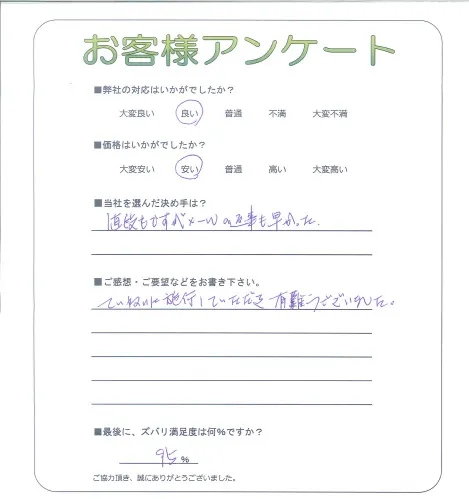 お客様アンケート
■弊社の対応はいかがでしたか?
大変良い 良い 普通 不満 大変不満
■価格はいかがでしたか?
大変安い 安い 普通 高い 大変高い
■当社を選んだ決め手は?
値段もですがメールの返事も早かった.
■ご感想・ご要望などをお書き下さい。
ていねいに施行していただき有難うございました。
■最後に、ズバリ満足度は何%ですか?
95%
ご協力頂き、誠にありがとうございました。